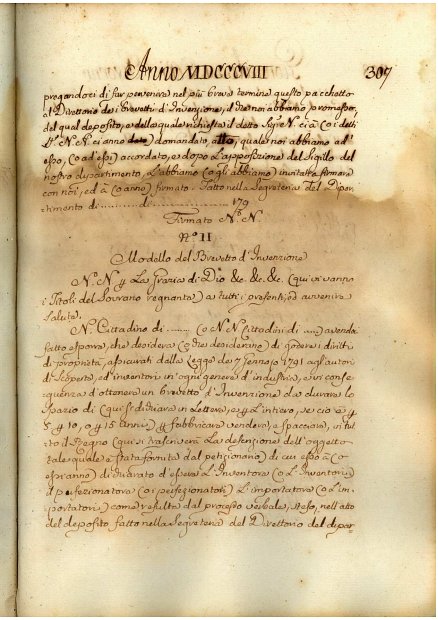 Anno MDCCCVIII 309
pregandoci di far pervenire nel più breve termine questo pacchetto
al Direttorio dei brevetti d'Invenzione, il che noi abbiamo promesso,
del qual deposito, e della quale richiesta il detto Sigr. N. ci à (o i detti
N. N. ci anno) domandato atto, quale noi abbiamo ad
esso, (o ad essi) accordato, e dopo l'apposizione del sigillo del
nostro dipartimento, l'abbiamo (o gli abbiamo) invitato a firmare
con noi, ed à (o anno) firmato. Fatto nella Segreteria del Dipar-
timento di ........ di ........ 179
Firmato N. N.
N.o II
Modello del Brevetto d'Invenzione
N. N. La Grazia di Dio &c. &c. &c. (qui vi vanno
i Titoli del Sovrano regnante) a tutti i presenti, ed avvenire
Salute.
N. Cittadino di ....... (o N N Cittadini di ...) avendo
fatto esporre, che desidera (o che desiderano) di godere i diritti
di proprietà, assicurati dalla Legge de 7 Gennajo 1791 agli autori
di Scoperte, ed inventori in ogni genere d'industria, e in conse-
guenza d'ottenere un brevetto d'Invenzione da durare lo
spazio di (qui si
5 10, o 15 anni) fabbricare vendere, e spacciare, in tut-
to il Regno (qui si trascriverà La descrizione dell'oggetto
tale quale è stata fornita dal petizionario) di cui esso à (o
essi anno) dichiarato d'essere L'Inventore (o L'Inventori)
il perfezionatore (o i perfezionatori) L'importatore (o L'im-
portatori) come risulta dal processo verbale, steso, nell'atto
del deposito fatto nella Segreteria del Direttorio del dipar-